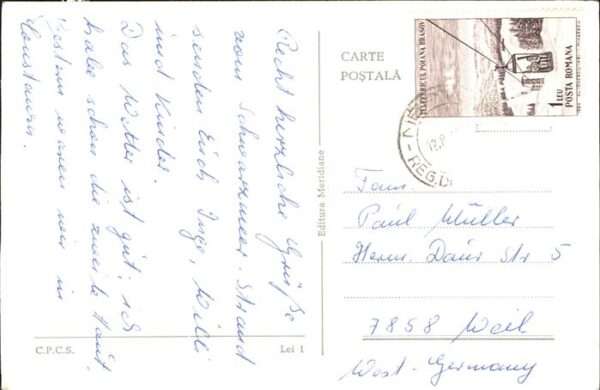 Recht herzliche Grüße
vom Schwarzmeer-Strand
senden Euch Inge, Willi
und Kinder.
Das Wetter ist gut, ich
habe schon die zweite Haut.
Gestern waren wir in
Constanza.
CARTE
POȘTALĂ
TELEFERICUL POIANA BRAȘOV
1 LEU
POSTA ROMANA
REG.
Editura Meridiane
Fam.
Paul Müller
Herm. Daur Str 5
7858 Weil
West-Germany
C.P.C.S.
Lei 1